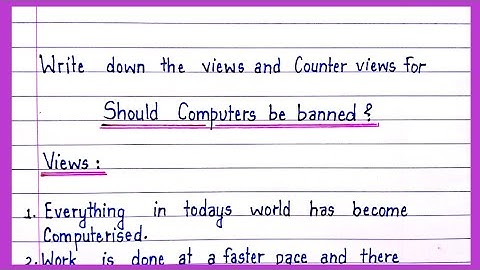 Write down the views and Counter views for
Should Computers be banned?
Views :
1. Everything in todays world has become
Computerised.
2. Work is done at a faster pace and there